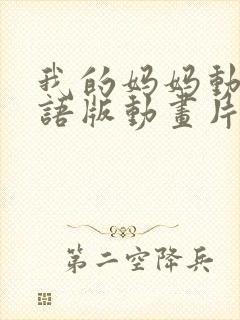 我的妈妈動
語版動畫片
第二空降兵